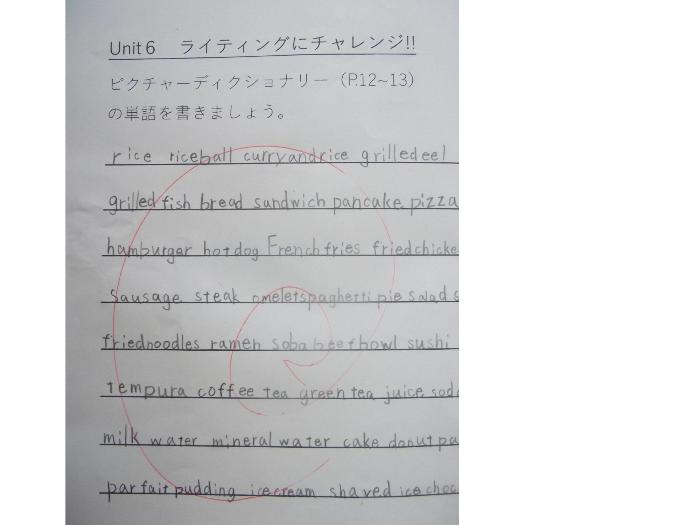 Unit 6 ライティングにチャレンジ!!
ピクチャーディクショナリー（P.12~13）
の単語を書きましょう。
rice riceball curryandrice grilledeel
grilled fish bread sandwich pancake pizza
hamburger hotdog Frenchfries friedchicke
sausage steak omeletspaghettipie salad s
friednoodles ramen soba beefbowl sushi
Tempura coffee tea green tea juice sod
milk water mineral water cake donut pa
parfait pudding icecream shaved ice choc